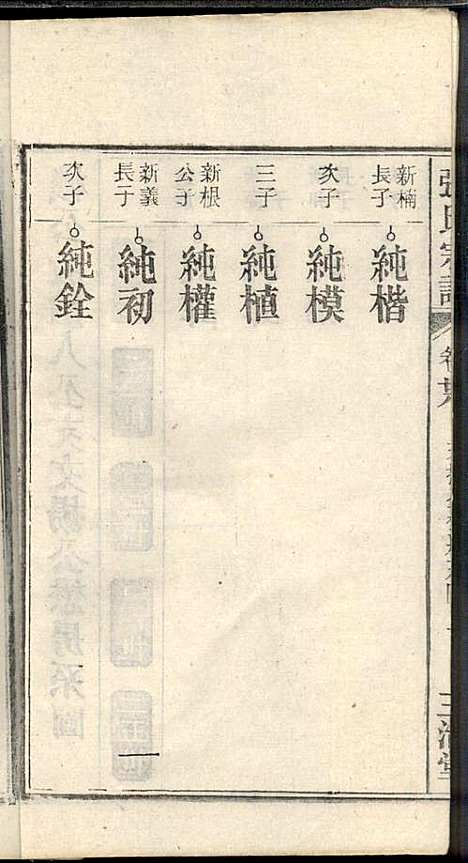 張氏宗譜
新楠長子
純楷
次子
純模
三子
純植
新根公子
純權
新義長子
純初
一
次子
純銓